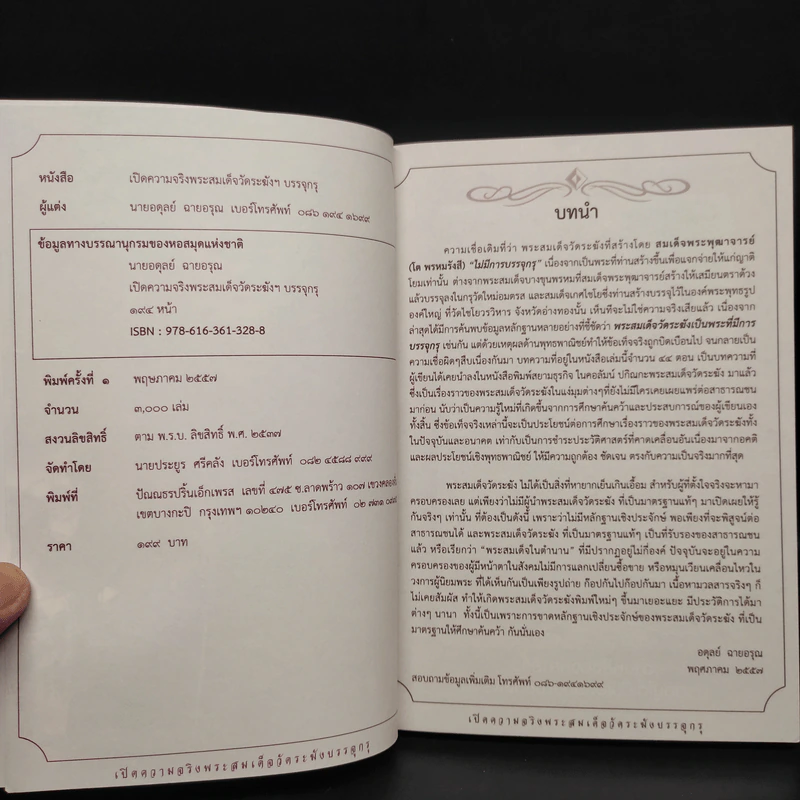 หนังสือ เปิดความจริงพระสมเด็จวัดระฆังฯ บรรจุกรุ
ผู้แต่ง นายอดุลย์ ฉายอรุณ เบอร์โทรศัพท์ ๐๘๖ ๑๙๔ ๑๖๙๙
ข้อมูลทางบรรณานุกรมของหอสมุดแห่งชาติ
นายอดุลย์ ฉายอรุณ
เปิดความจริงพระสมเด็จวัดระฆังฯ บรรจุกรุ
๑๙๔ หน้า
ISBN : 978-616-361-328-8
พิมพ์ครั้งที่ ๑ พฤษภาคม ๒๕๕๗
จำนวน ๓,๐๐๐ เล่ม
สงวนลิขสิทธิ์ ตาม พ.ร.บ. ลิขสิทธิ์ พ.ศ. ๒๕๓๗
จัดทำโดย นายประยูร ศรีคลัง เบอร์โทรศัพท์ ๐๘๒ ๔๕๘๘ ๙๙๙
พิมพ์ที่ ปัณณธรปริ้นเอ็กเพรส เลขที่ ๔๗๕ ซ.ลาดพร้าว ๑๐๗ เขวงคลองจั่น
เขตบางกะปิ กรุงเทพฯ ๑๐๒๔๐ เบอร์โทรศัพท์ ๐๒ ๗๓๑
ราคา ๑๙๙ บาท
เปิดความจริงพระสมเด็จวัดระฆังบรรจุกรุ
บทนำ
ความเชื่อเดิมที่ว่า พระสมเด็จวัดระฆังที่สร้างโดย สมเด็จพระพุฒาจารย์
(โต พรหมรังสี) "ไม่มีการบรรจุกรุ" เนื่องจากเป็นพระที่ท่านสร้างขึ้นเพื่อแจกจ่ายให้แก่ญาติ
โยมเท่านั้น ต่างจากพระสมเด็จบางขุนพรหมที่สมเด็จพระพุฒาจารย์สร้างให้เสมียนตราด้วง
แล้วบรรจุลงในกรุวัดใหม่อมตรส และสมเด็จเกศไชโยซึ่งท่านสร้างบรรจุไว้ในองค์พระพุทธรูป
องค์ใหญ่ ที่วัดไชโยวรวิหาร จังหวัดอ่างทองนั้น เห็นทีจะไม่ใช่ความจริงเสียแล้ว เนื่องจาก
ล่าสุดได้มีการค้นพบข้อมูลหลักฐานหลายอย่างที่ชี้ชัดว่า พระสมเด็จวัดระฆังเป็นพระที่มีการ
บรรจุกรุ เช่นกัน แต่ด้วยเหตุผลด้านพุทธพาณิชย์ทำให้ข้อเท็จจริงถูกบิดเบือนไป จนกลายเป็น
ความเชื่อผิดๆสืบเนื่องกันมา บทความที่อยู่ในหนังสือเล่มนี้จำนวน ๔๔ ตอน เป็นบทความที่
ผู้เขียนได้เคยนำลงในหนังสือพิมพ์สยามธุรกิจ ในคอลัมน์ ปกิณกะพระสมเด็จวัดระฆัง มาแล้ว
ซึ่งเป็นเรื่องราวของพระสมเด็จวัดระฆังในแง่มุมต่างๆที่ยังไม่มีใครเคยเผยแพร่ต่อสาธารณชน
มาก่อน นับว่าเป็นความรู้ใหม่ที่เกิดขึ้นจากการศึกษาค้นคว้าและประสบการณ์ของผู้เขียนเอง
ทั้งสิ้น ซึ่งข้อเท็จจริงเหล่านี้จะเป็นประโยชน์ต่อการศึกษาเรื่องราวของพระสมเด็จวัดระฆังทั้ง
ในปัจจุบันและอนาคต เท่ากับเป็นการชำระประวัติศาสตร์ที่คาดเคลื่อนอันเนื่องมาจากอคติ
และผลประโยชน์เชิงพุทธพาณิชย์ ให้มีความถูกต้อง ชัดเจน ตรงกับความเป็นจริงมากที่สุด
พระสมเด็จวัดระฆัง ไม่ได้เป็นสิ่งที่หายากเย็นเกินเอื้อม สำหรับผู้ที่ตั้งใจจริงจะหามา
ครอบครองเลย แต่เพียงว่าไม่มีผู้นำพระสมเด็จวัดระฆัง ที่เป็นมาตรฐานแท้ๆ มาเปิดเผยให้รู้
กันจริงๆ เท่านั้น ที่ต้องเป็นดังนี้ เพราะว่าไม่มีหลักฐานเชิงประจักษ์ พอเพียงที่จะพิสูจน์ต่อ
สาธารณชนได้ และพระสมเด็จวัดระฆัง ที่เป็นมาตรฐานแท้ๆ เป็นที่รับรองของสาธารณชน
แล้ว หรือเรียกว่า "พระสมเด็จในตำนาน" ที่มีปรากฏอยู่ไม่กี่องค์ ปัจจุบันจะอยู่ในความ
ครอบครองของผู้มีหน้าตาในสังคมไม่มีการแลกเปลี่ยนซื้อขาย หรือหมุนเวียนเคลื่อนไหวใน
วงการผู้นิยมพระ ที่ได้เห็นกันเป็นเพียงรูปถ่าย ก๊อปกันไปก๊อปกันมา เนื้อหามวลสารจริงๆ ก็
ไม่เคยสัมผัส ทำให้เกิดพระสมเด็จวัดระฆังพิมพ์ใหม่ๆ ขึ้นมาเยอะแยะ มีประวัติการได้มา
ต่างๆ นานา ทั้งนี้เป็นเพราะการขาดหลักฐานเชิงประจักษ์ของพระสมเด็จวัดระฆัง ที่เป็น
มาตรฐานให้ศึกษาค้นคว้า กันนั่นเอง
อดุลย์ ฉายอรุณ
พฤศภาคม ๒๕๕๗
สอบถามข้อมูลเพิ่มเติม โทรศัพท์ ๐๘๖-๑๙๔๑๖๙๙
เปิดความจริงพระสมเด็จวัดระฆังบรรจุกรุ